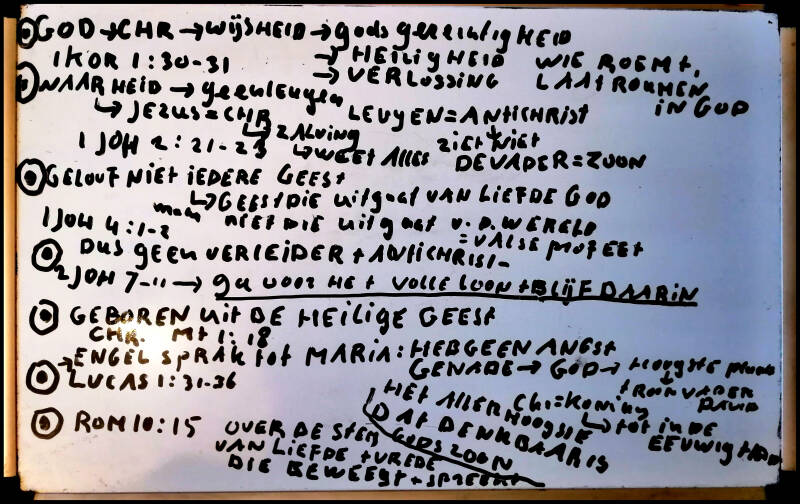 GOD → CHR → WIJSHEID → gods gerechtigHEID
1 KOR 1:30-31 → HEILIGHEID WIE ROEMT,
→ VERLOSSING LAAT ROEMEN
IN GOD
WAARHEID → geen leugen
↳ JEZUS = CHR LEUGEN = ANTICHRIST
↳ ZALVING ZIET NIET
1 JOH 2:21-23 ↳ WEET ALLES DE VADER = ZOON
GELOOF NIET IEDERE GEEST
↳ GEEST DIE uitgaat VAN LIEFDE GOD
1 JOH 4:1-2 maar NIET DIE uitgaat v.d. WERELD
= VALSE PROFEET
DUS geen VERLEIDER + ANTICHRIST
2 JOH 7-11 → ga voor HET VOLLE LOON + BLIJF DAARIN
GEBOREN uit DE HEILIGE GEEST
CHR. Mt 1:18
→ ENGEL SPRAK tot MARIA: HEB GEEN ANGST
GENADE → GOD → Hoogste
LUCAS 1:31-36 TROON VADER
DAVID
HET ALLER HOOGSTE CHR = KONING
↳ tot in DE
EEUWIGHEID
DAT DENKBAAR IS
GODS ZOON
ROM 10:15 OVER DE STEM
VAN LIEFDE + VREDE
DIE BEWEEGT + SPREEKT